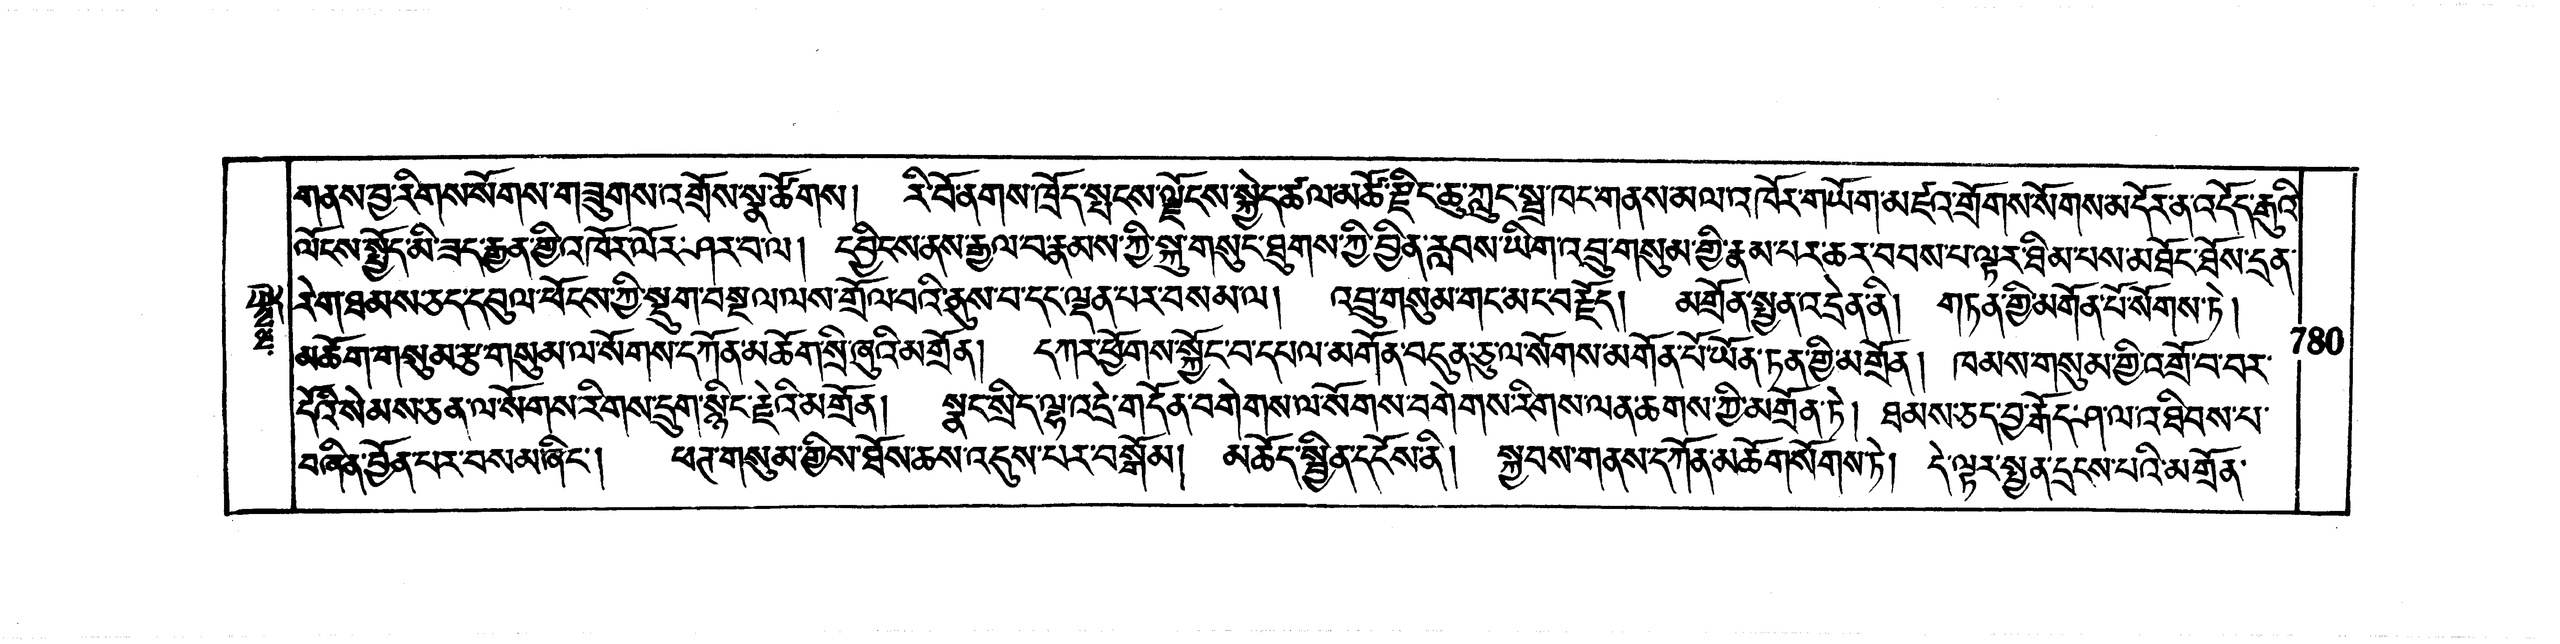 གནས་བྱ་རིགས་སོགས་གཟུགས་འགྲོས་སྣ་ཚོགས། རི་བོ་ནགས་ཁྲོད་སྤངས་ལྗོངས་སྐྱེད་ཚལ་མཚོ་རྫིང་ཆུ་ཀླུང་སྦྲ་ཁང་གནས་མལ་འཁོར་གཡོག་མཛའ་གྲོགས་སོགས་མདོར་ན་འདོད་རྒུའི་
ལོངས་སྤྱོད་མི་ཟད་རྒྱན་གྱི་འཁོར་ལོར་ཤར་བ་ལ། དབྱིངས་ནས་རྒྱལ་བ་རྣམས་ཀྱི་སྐུ་གསུང་ཐུགས་ཀྱི་བྱིན་རླབས་ཡིག་འབྲུ་གསུམ་གྱི་རྣམ་པར་ཆར་བབས་པ་ལྟར་ཐིམ་པས་མཐོང་ཐོས་དྲན་
རེག་ཐམས་ཅད་དབུལ་ཕོངས་ཀྱི་སྡུག་བསྔལ་ལས་གྲོལ་བའི་ནུས་པ་དང་ལྡན་པར་བསམ་ལ། འབྲུ་གསུམ་གང་མང་བརྗོད། མགྲོན་སྤྱན་འདྲེན་ནི། གཏན་གྱི་མགོན་པོ་སོགས་ཏེ།
མཆོག་གསུམ་རྩ་གསུམ་ལ་སོགས་དཀོན་མཆོག་སྲི་ཞུའི་མགྲོན། དཀར་ཕྱོགས་སྐྱོང་བ་དཔལ་མགོན་བདུན་ཅུ་ལ་སོགས་མགོན་པོ་ཡོན་ཏན་གྱི་མགྲོན། ཁམས་གསུམ་གྱི་འགྲོ་བ་བར་
དོའི་སེམས་ཅན་ལ་སོགས་རིགས་དྲུག་སྙིང་རྗེའི་མགྲོན། སྣང་སྲིད་ལྷ་འདྲེ་གདོན་བགེགས་ལ་སོགས་བགེགས་རིགས་ལན་ཆགས་ཀྱི་མགྲོན་ཏེ། ཐམས་ཅད་བྱ་རྒོད་ཤ་ལ་འཐིབས་པ་
བཞིན་བྱོན་པར་བསམ་ཞིང་། ཕཊ་གསུམ་གྱིས་ཐོས་ཆས་འདུས་པར་བསྒོམ། མཆོད་སྦྱིན་དངོས་ནི། སྐྱབས་གནས་དཀོན་མཆོག་སོགས་ཏེ། དེ་ལྟར་སྤྱན་དྲངས་པའི་མགྲོན་
780